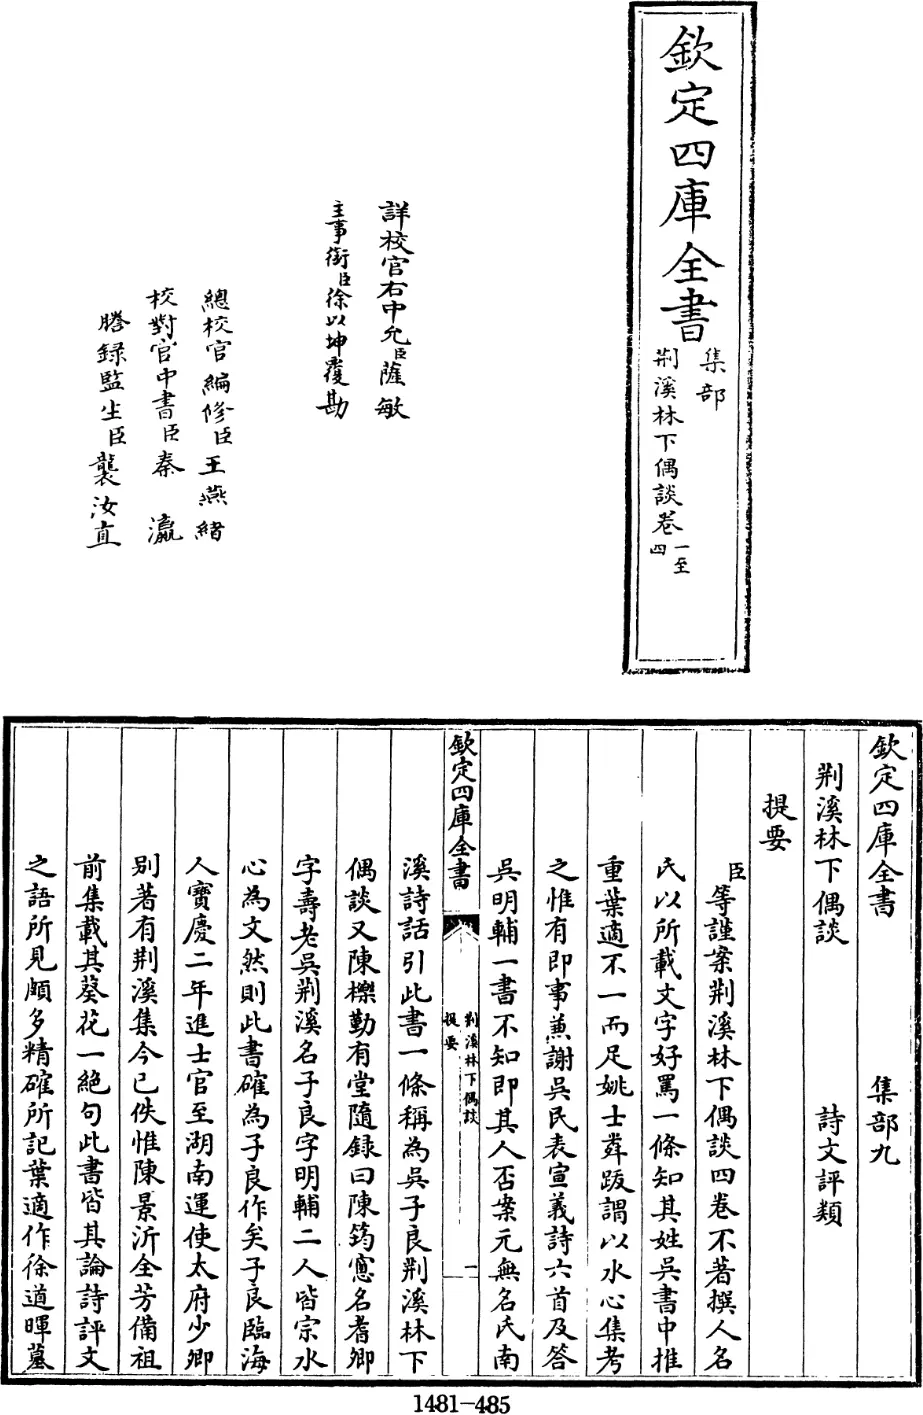 欽定四庫全書
集部
荆溪林下偶談卷一至四
詳校官右中允臣薩敏
主事銜臣徐以坤覆勘
總校官編修臣王燕緒
校對官中書臣秦瀛
謄録監生臣襲汝直
欽定四庫全書 集部九
荆溪林下偶談 詩文評類
提要
臣等謹案荆溪林下偶談四卷不著撰人名
氏以所載文字好罵一條知其姓吳書中推
重葉適不一而足姚士粦跋謂以水心集考
之惟有即事兼謝吳民表宣義詩六首及答
吳明輔一書不知即其人否案元無名氏南
欽定四庫全書
荆溪林下偶談
提要
一
溪詩話引此書一條稱為吳子良荆溪林下
偶談又陳櫟勤有堂隨録曰陳筠窻名耆卿
字壽老吳荆溪名子良字明輔二人皆宗水
心為文然則此書確為子良作矣子良臨海
人寶慶二年進士官至湖南運使太府少卿
别著有荆溪集今已佚惟陳景沂全芳備祖
前集載其葵花一絶句此書皆其論詩評文
之語所見頗多精確所記葉適作徐道暉墓
1481-485